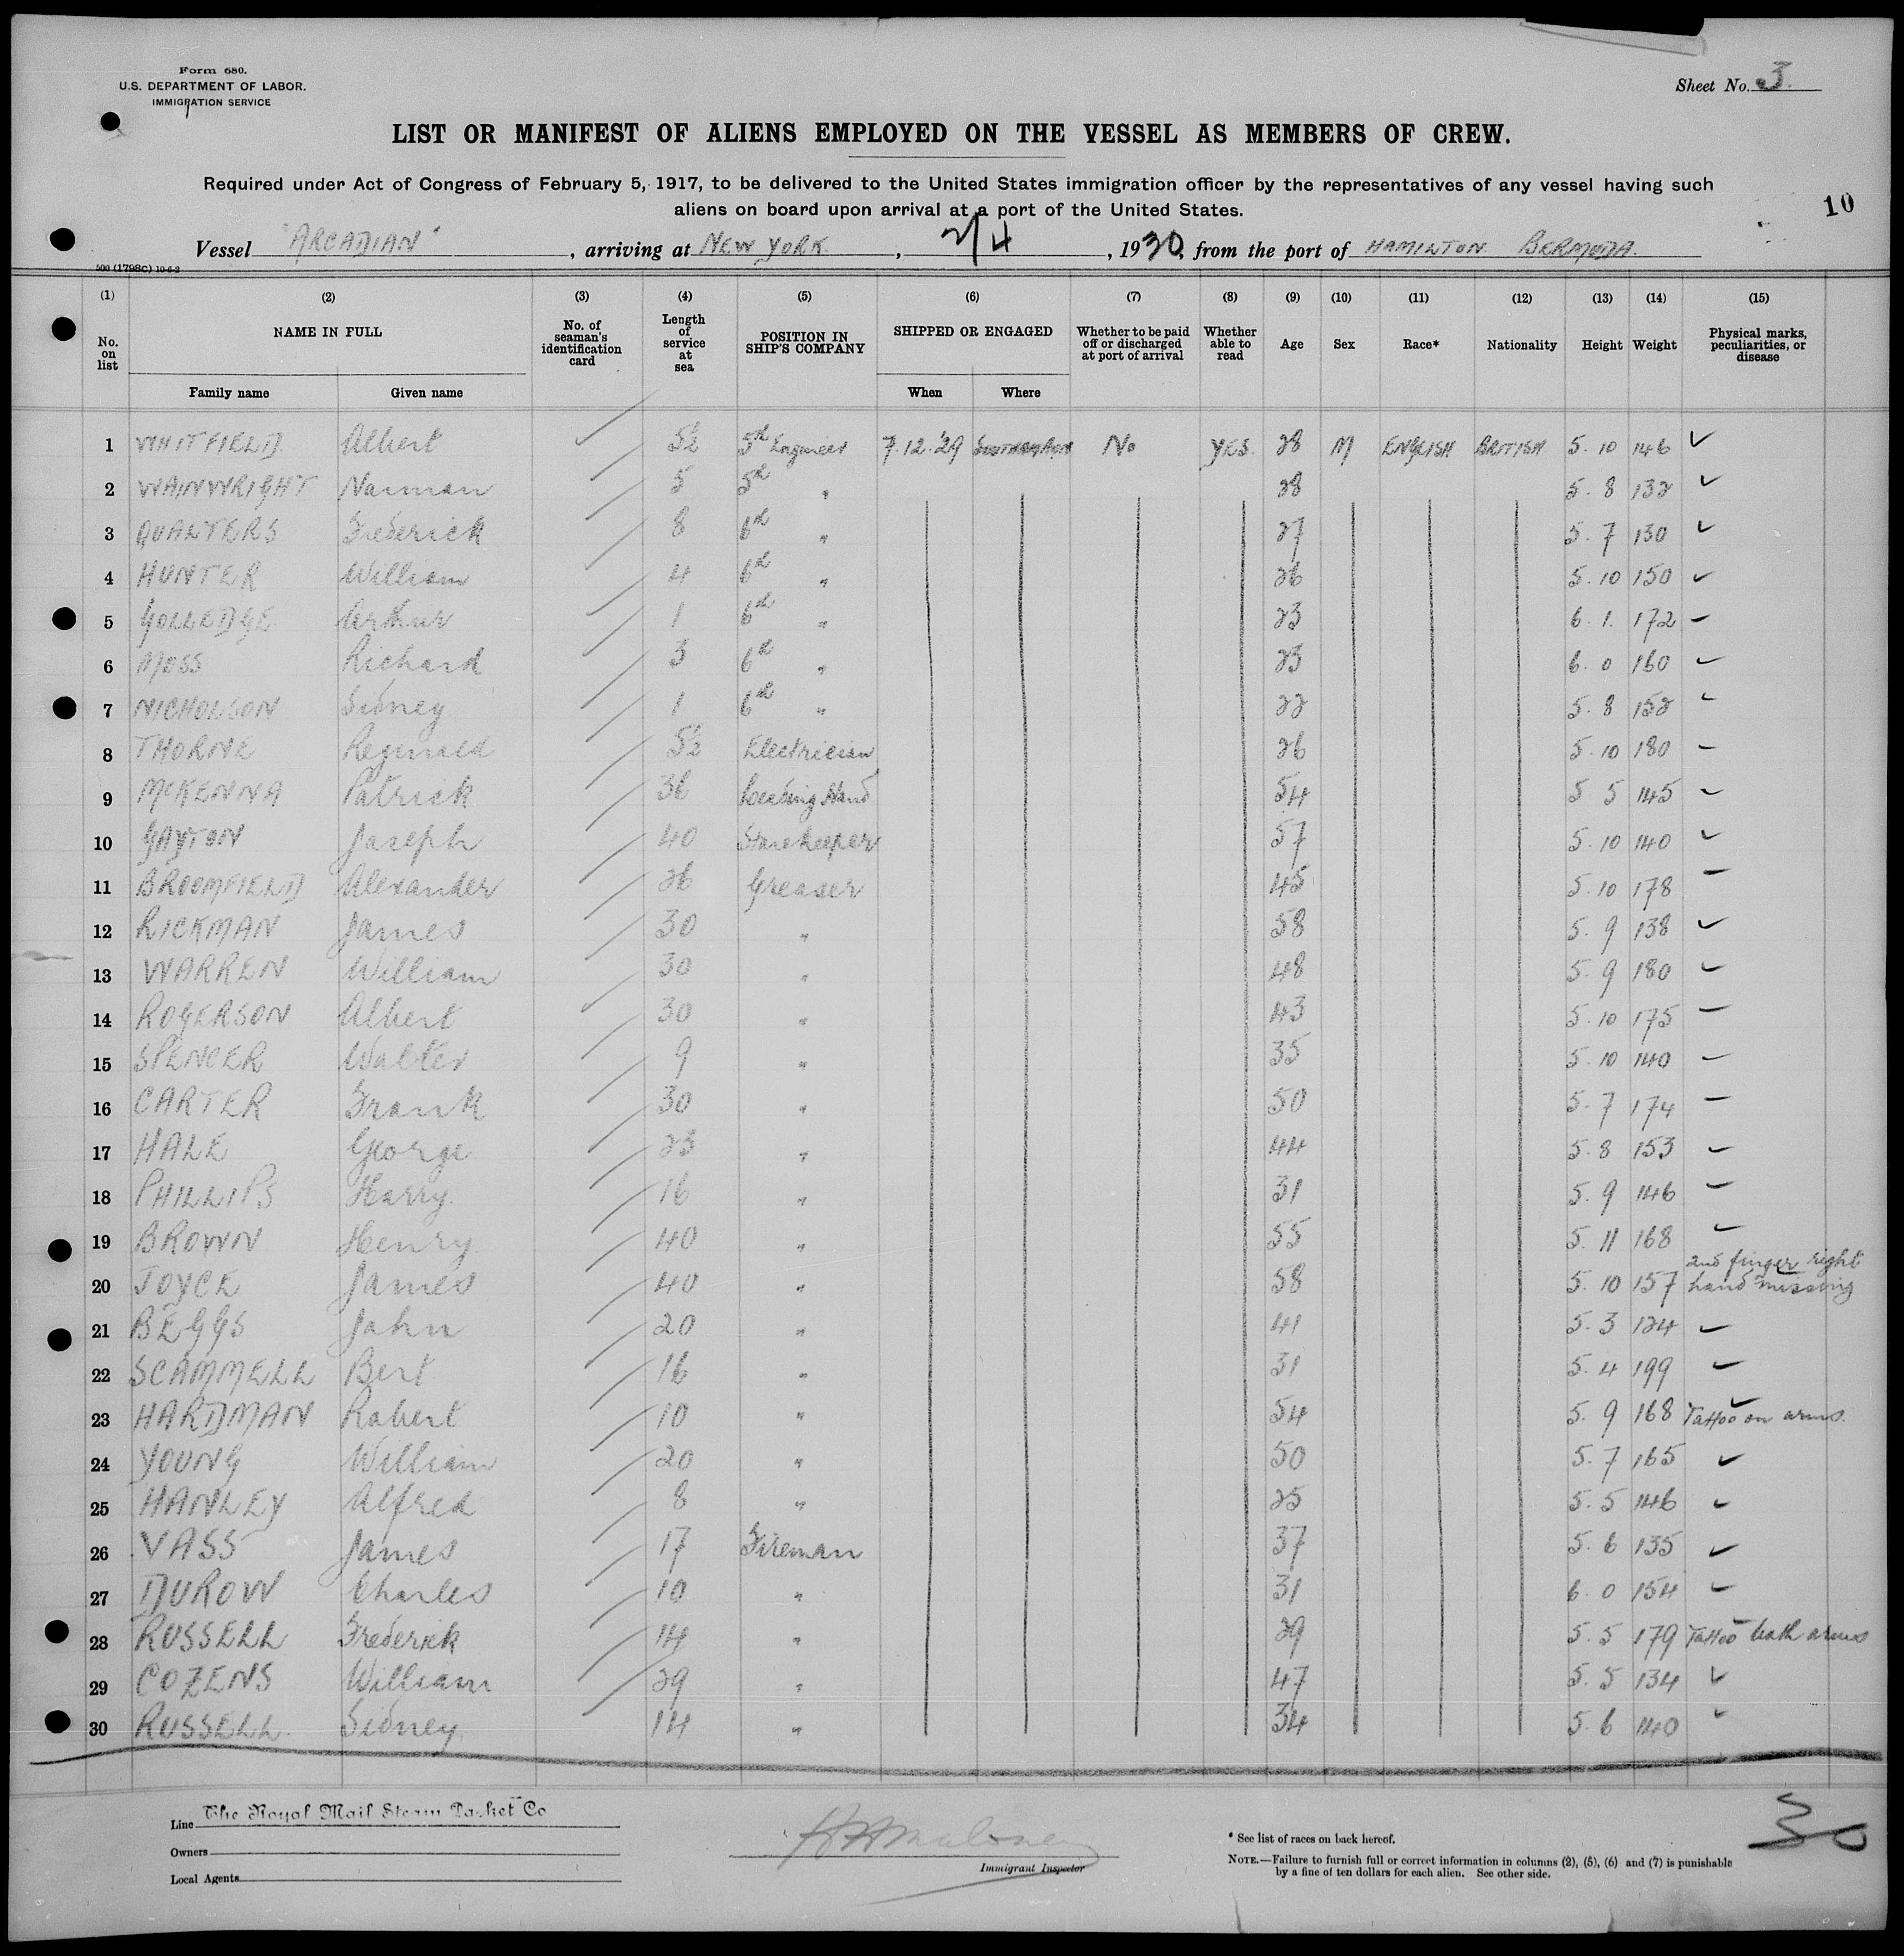 Form 680.
U.S. DEPARTMENT OF LABOR.
IMMIGRATION SERVICE
Sheet No. 3
LIST OR MANIFEST OF ALIENS EMPLOYED ON THE VESSEL AS MEMBERS OF CREW.
Required under Act of Congress of February 5, 1917, to be delivered to the United States immigration officer by the representatives of any vessel having such
aliens on board upon arrival at a port of the United States.
10
Vessel "ARCADIAN", arriving at NEW YORK, 2/4, 1930, from the port of HAMILTON BERMUDA.
500 (1798C) 10-6-2
(1) (2) (3) (4) (5) (6) (7) (8) (9) (10) (11) (12) (13) (14) (15)
No. on list NAME IN FULL Family name Given name No. of seaman's identification card Length of service at sea POSITION IN SHIP'S COMPANY SHIPPED OR ENGAGED When Where Whether to be paid off or discharged at port of arrival Whether able to read Age Sex Race* Nationality Height Weight Physical marks, peculiarities, or disease
1 WHITFIELD Albert 5½ 5th Engineer 7.12.29 SOUTHAMPTON No YES 28 M ENGLISH BRITISH 5.10 146 ✓
2 WAINWRIGHT Norman 5 5th " 28 5.8 132 ✓
3 QUALTERS Frederick 8 6th " 27 5.7 130 ✓
4 HUNTER William 4 6th " 26 5.10 150 ✓
5 GOLLEDGE Arthur 1 6th " 23 6.1. 172 ✓
6 MOSS Richard 3 6th " 23 6.0 160 ✓
7 NICHOLSON Sidney 1 6th " 22 5.8 152 ✓
8 THORNE Reginald 5½ Electrician 26 5.10 180 ✓
9 McKENNA Patrick 36 Leading Hand 54 5 5 145 ✓
10 GAYTON Joseph 40 Storekeeper 57 5.10 140 ✓
11 BROOMFIELD Alexander 26 Greaser 45 5.10 178 ✓
12 RICKMAN James 30 " 58 5.9 138 ✓
13 WARREN William 30 " 48 5.9 180 ✓
14 ROGERSON Albert 30 " 43 5.10 175 ✓
15 SPENCER Walter 9 " 35 5.10 140 ✓
16 CARTER Frank 30 " 50 5.7 174 ✓
17 HALE George 23 " 44 5.8 153 ✓
18 PHILLIPS Harry. 16 " 31 5.9 146 ✓
19 BROWN Henry 40 " 55 5.11 168 ✓
20 JOYCE James 40 " 58 5.10 157 2nd finger right hand missing
21 BEGGS John 20 " 41 5.3 124 ✓
22 SCAMMELL Bert 16 " 31 5.4 199 ✓
23 HARDMAN Robert 10 " 54 5.9 168 Tattoo on arms. ✓
24 YOUNG William 20 " 50 5.7 165 ✓
25 HANLEY Alfred 8 " 25 5.5 146 ✓
26 VASS James 17 Fireman 37 5.6 135 ✓
27 DUROW Charles 10 " 31 6.0 154 ✓
28 RUSSELL Frederick 14 " 29 5.5 179 Tattoo both arms
29 COZENS William 29 " 47 5.5 134 ✓
30 RUSSELL Sidney 14 " 34 5.6 140 ✓
Line The Royal Mail Steam Packet Co
Owners
Local Agents
Immigrant Inspector
* See list of races on back hereof.
NOTE.—Failure to furnish full or correct information in columns (2), (5), (6) and (7) is punishable
by a fine of ten dollars for each alien. See other side.
30